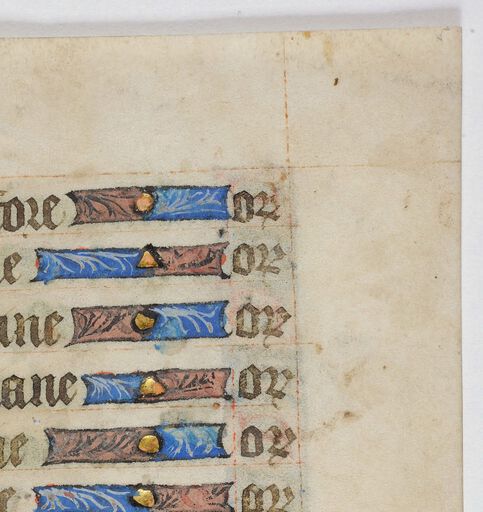 ore or
e or
ne or
ane or
e or
e or